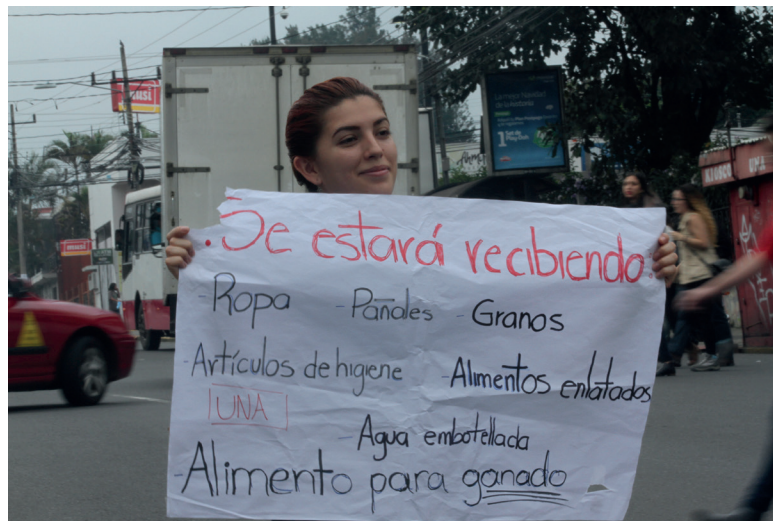 .Se estará recibiendo
-Ropa -Pañales -Granos
-Artículos de higiene -Alimentos enlatados
UNA
-Agua embotellada
-Alimento para ganado
KIOSCO UNA